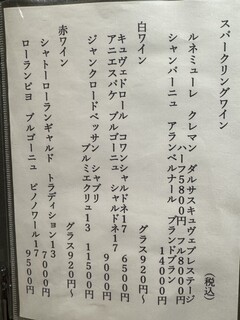 スパークリングワイン
(税込)
ルネミューレ クレマン ダルサスキュヴェプレステージ
ハーフ5800円 フル8000円
シャンパーニュ アランベルナール ブランドブラン
14000円
白ワイン
グラス920円〜
キュヴェドロール コワンシャルドネ17 6500円
アニエスパケ ブルゴーニュ シャルドネ17
9000円
ジャンクロードベッサン シャブリ
プルミエクリュ13 11500円
赤ワイン
グラス920円〜
シャトーローランギャルド トラディション13
7000円
ローランピヨ ブルゴーニュ ピノノワール17
9500円